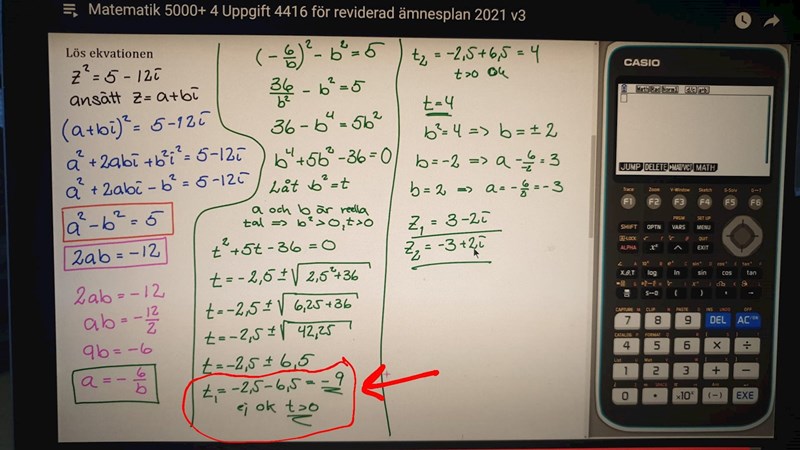 Matematik 5000+ 4 Uppgift 4416 för reviderad ämnesplan 2021 v3
Lös ekvationen
z² = 5 - 12i
ansätt z = a + bi
(a+bi)² = 5-12i
a² + 2abi + b²i² = 5-12i
a² + 2abi - b² = 5-12i
a² - b² = 5
2ab = -12
2ab = -12
ab = -12/2
ab = -6
a = - 6/b
(-6/b)² - b² = 5
36/b² - b² = 5
36 - b⁴ = 5b²
b⁴ + 5b² - 36 = 0
Låt b² = t
a och b är reella
tal => b² > 0, t > 0
t² + 5t - 36 = 0
t = -2,5 ± √(2,5² + 36)
t = -2,5 ± √(6,25 + 36)
t = -2,5 ± √(42,25)
t = -2,5 ± 6,5
t₁ = -2,5 - 6,5 = -9
ej ok t > 0
t₂ = -2,5 + 6,5 = 4
t > 0 ok
t = 4
b² = 4 => b = ± 2
b = -2 => a - 6/-2 = 3
b = 2 => a = - 6/2 = -3
z₁ = 3 - 2i
z₂ = -3 + 2i
CASIO
Math Rad Norm1 d/c a+bi
JUMP DELETE MATH
F1 F2 F3 F4 F5 F6
SHIFT OPTN VARS MENU
ALPHA x² ^ EXIT
X,θ,T log ln sin cos tan
7 8 9 DEL AC
4 5 6 × ÷
1 2 3 + -
0 . ×10ˣ (-) EXE